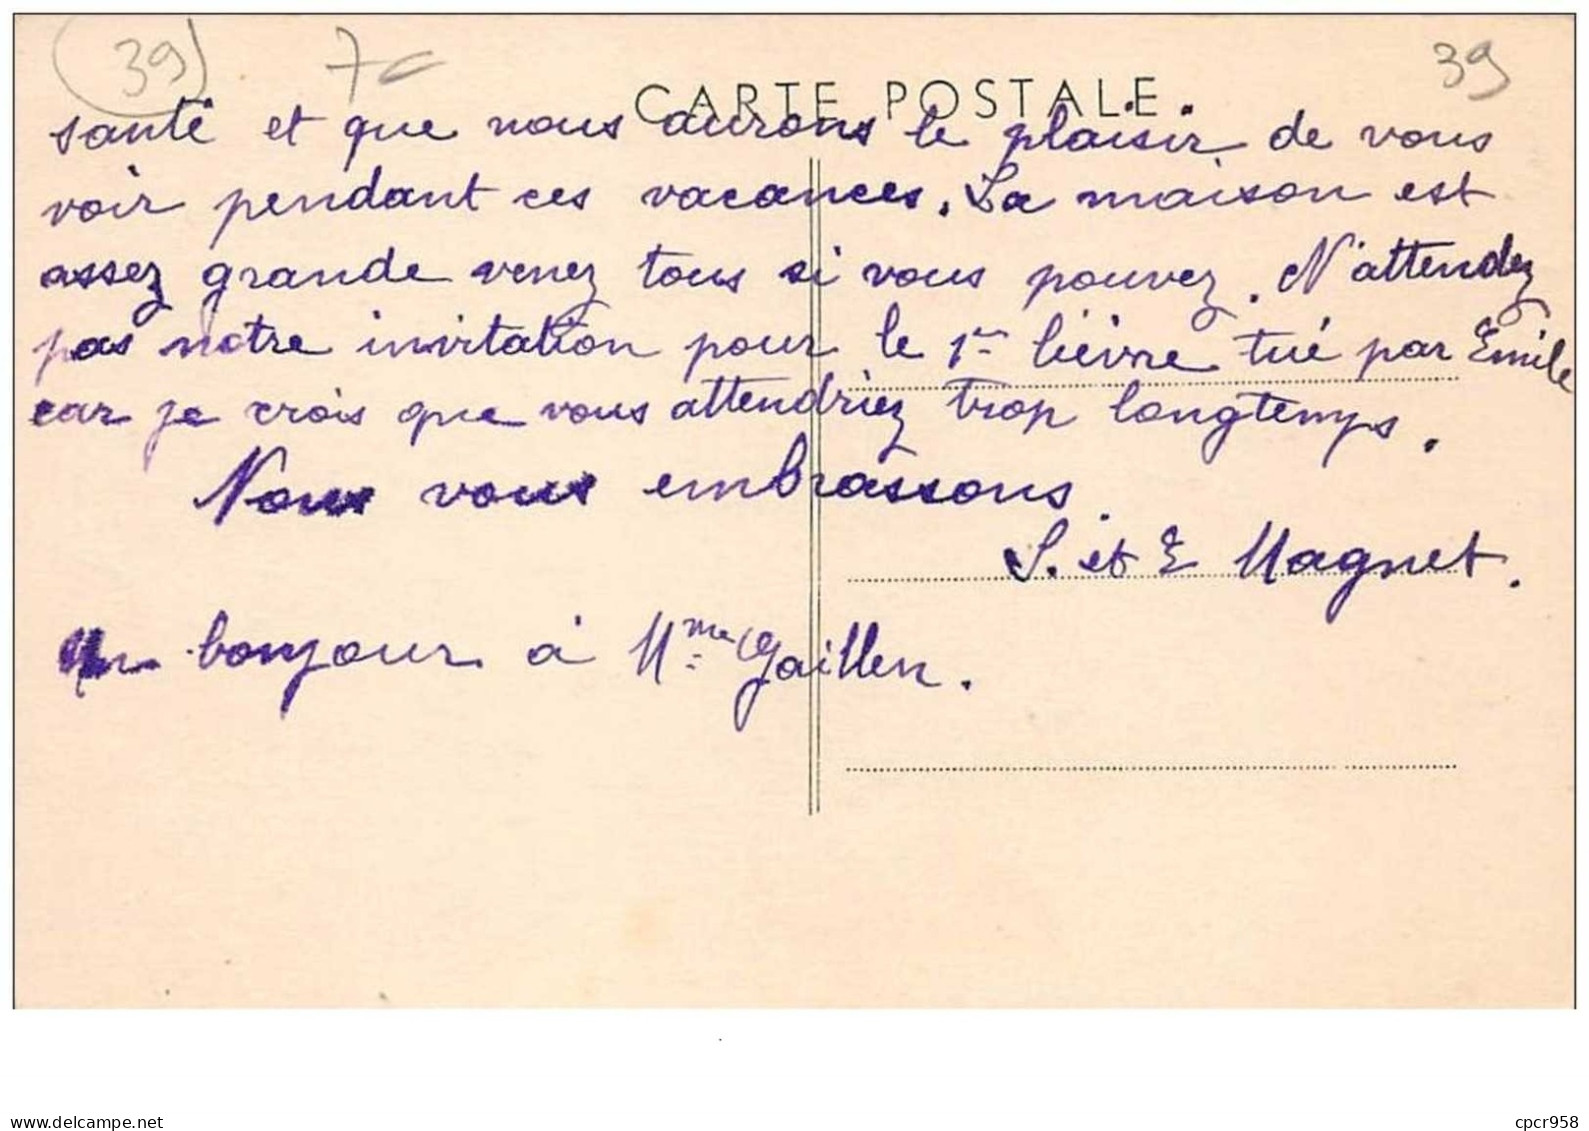 39 7c 39
CARTE POSTALE
santé et que nous aurons le plaisir de vous
voir pendant ces vacances. La maison est
assez grande venez tous si vous pouvez. N'attendez
pas notre invitation pour le 1er lièvre tué par Emile
car je crois que vous attendriez trop longtemps.
Nous vous embrassons.
S. et E Magnet.
Un bonjour à Mme Gaillen.
delcampe.net
cpcr958